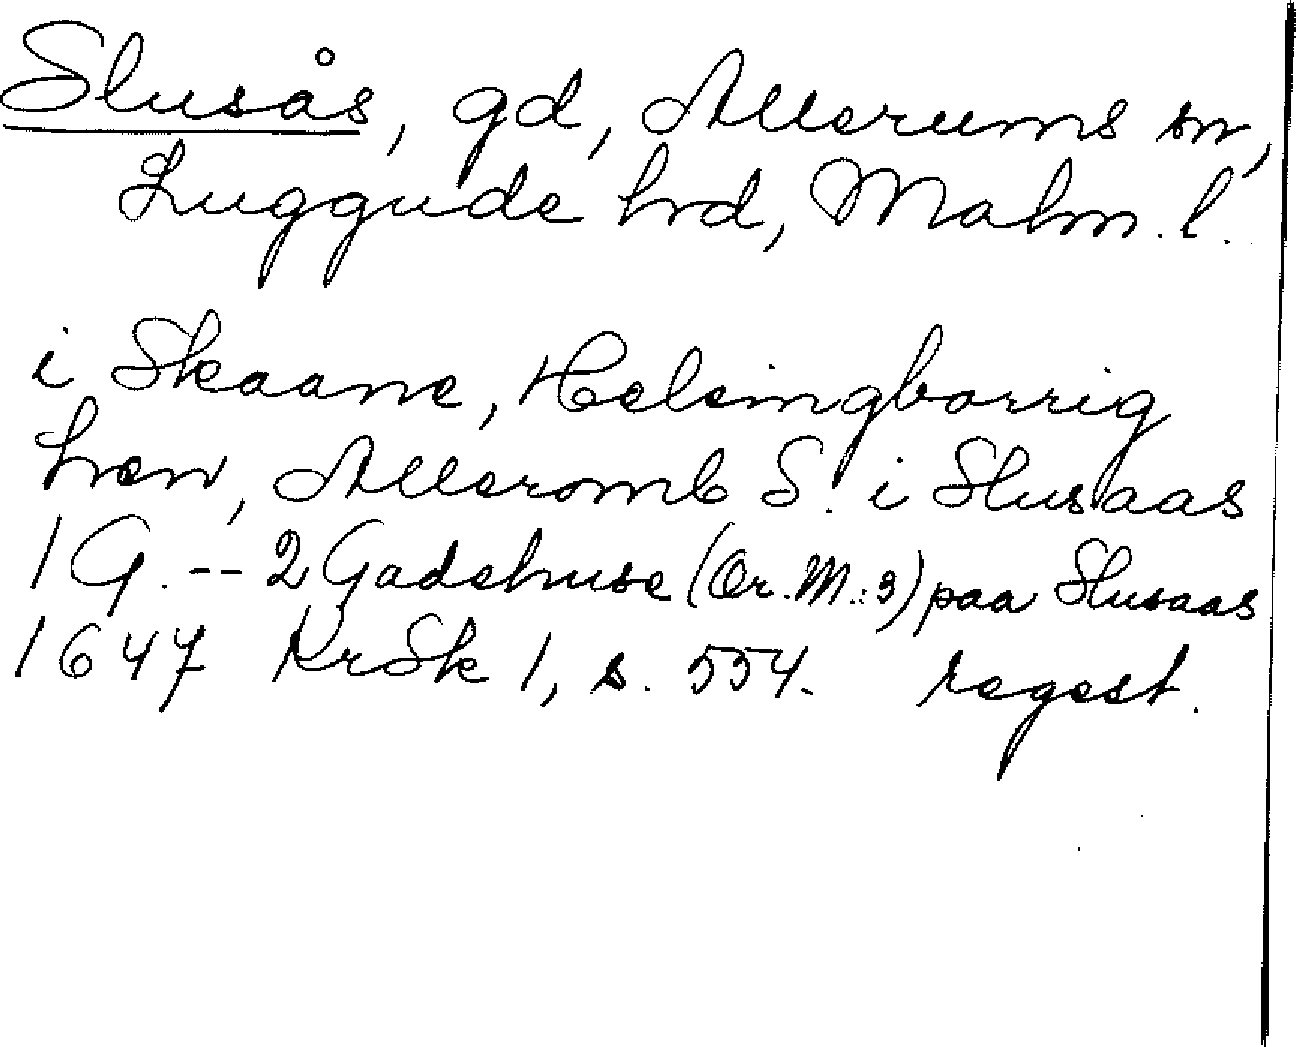 Slusås, gd, Allerums sn,
Luggude hrd, Malm. l.
i Skaane, Helsingborrig
Læn, Alleromb S. i Slusaas
1 G. -- 2 Gadehuse (Or. M.: 3) paa Slusaas
1647 KrSk 1, s. 554. regest.